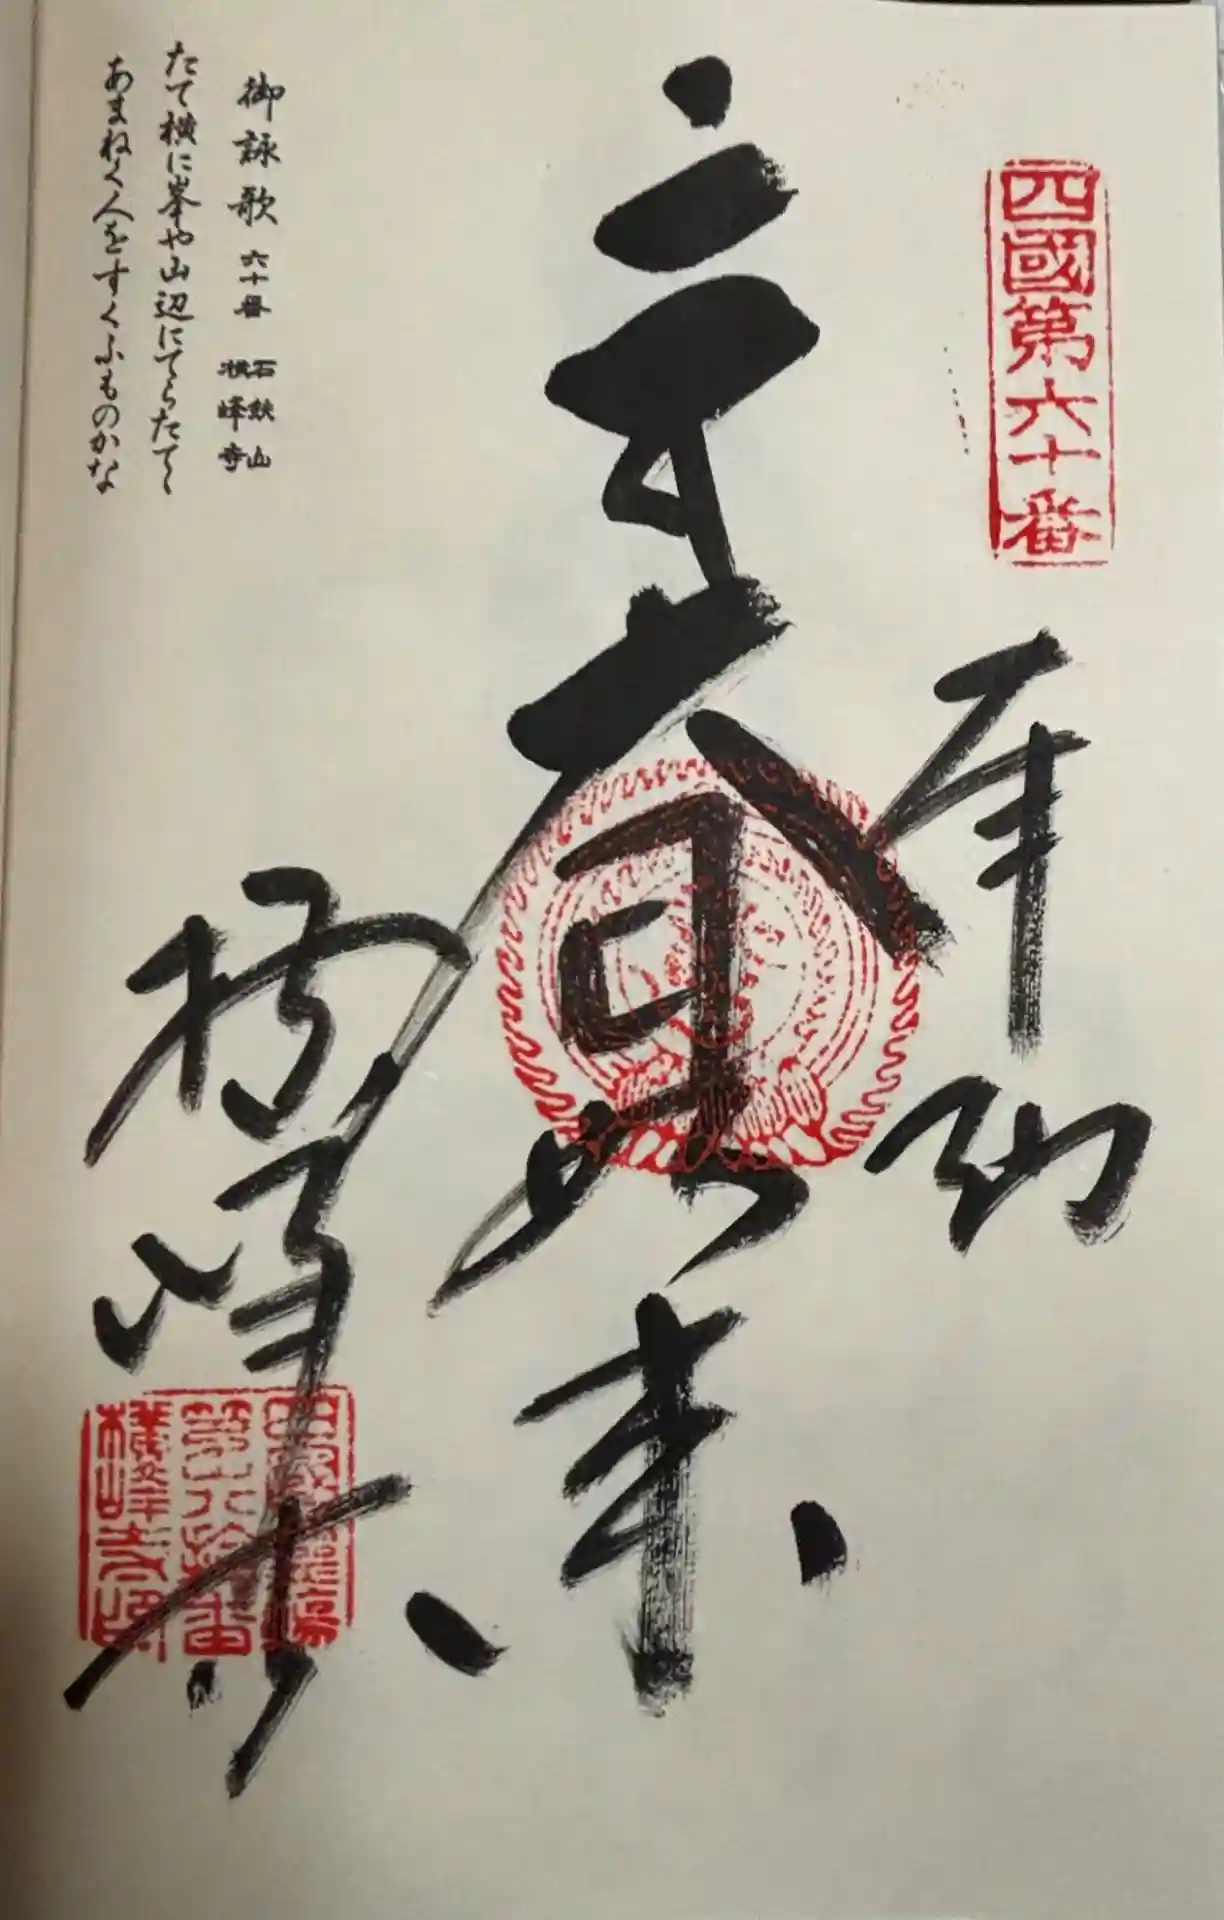 四國第六十番
奉納
大日如来
横峰寺
御詠歌 六十番 石鈇山
横峰寺
たて横に峯や山辺にてらたて〱
あまねく人をすくふものかな